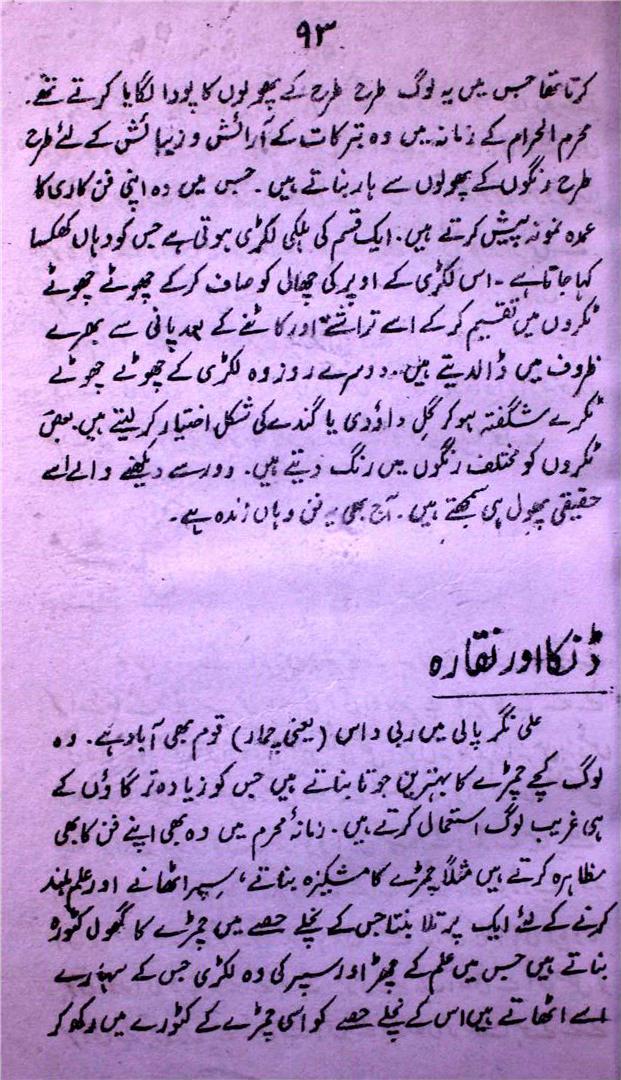 ۹۳
کرتا تھا جس میں یہ لوگ طرح طرح کے پھولوں کا پودا لگایا کرتے تھے۔
محرم الحرام کے زمانہ میں وہ تبرکات کے آرائش و زیبائش کے لئے طرح
طرح رنگوں کے پھولوں سے ہار بناتے ہیں۔ جس میں وہ اپنی فن کاری کا
عمدہ نمونہ پیش کرتے ہیں۔ ایک قسم کی ہلکی لکڑی ہوتی ہے جس کو وہاں کھکسا
کہا جاتا ہے۔ اس لکڑی کے اوپر کی چھالی کو صاف کرکے چھوٹے چھوٹے
ٹکروں میں تقسیم کر کے اسے تراشتے اور کاٹنے کے بعد پانی سے بھرے
ظروف میں ڈالدیتے ہیں۔ دوسرے روز وہ لکڑی کے چھوٹے چھوٹے
ٹکرے شگفتہ ہوکر گل داؤدی یا گندے کی شکل اختیار کر لیتے ہیں۔ بعض
ٹکروں کو مختلف رنگوں میں رنگ دیتے ہیں۔ دور سے دیکھنے والے اسے
حقیقی پھول ہی سمجھتے ہیں۔ آج بھی یہ فن وہاں زندہ ہے۔
ڈنکا اور نقارہ
علی نگر پالی میں ربی داس (یعنی چمار) قوم بھی آباد ہے۔ وہ
لوگ کچے چمڑے کا بہترین جوتا بناتے ہیں جس کو زیادہ تر گاؤں کے
ہی غریب لوگ استعمال کرتے ہیں۔ زمانۂ محرم میں وہ بھی اپنے فن کا بھی
مظاہرہ کرتے ہیں مثلاً چمڑے کا مشکیزہ بنانے، سپر اٹھانے اور علم بلند
کرنے کے لئے ایک پرتلا بنتا جس کے نچلے حصے میں چمڑے کا گھول کٹورہ
بناتے ہیں جس میں علم کے چھڑ اور سپر کی وہ لکڑی جس کے سہارے
اسے اٹھاتے ہیں اس کے نچلے حصے کو اسی چمڑے کے کٹورے میں رکھ کر